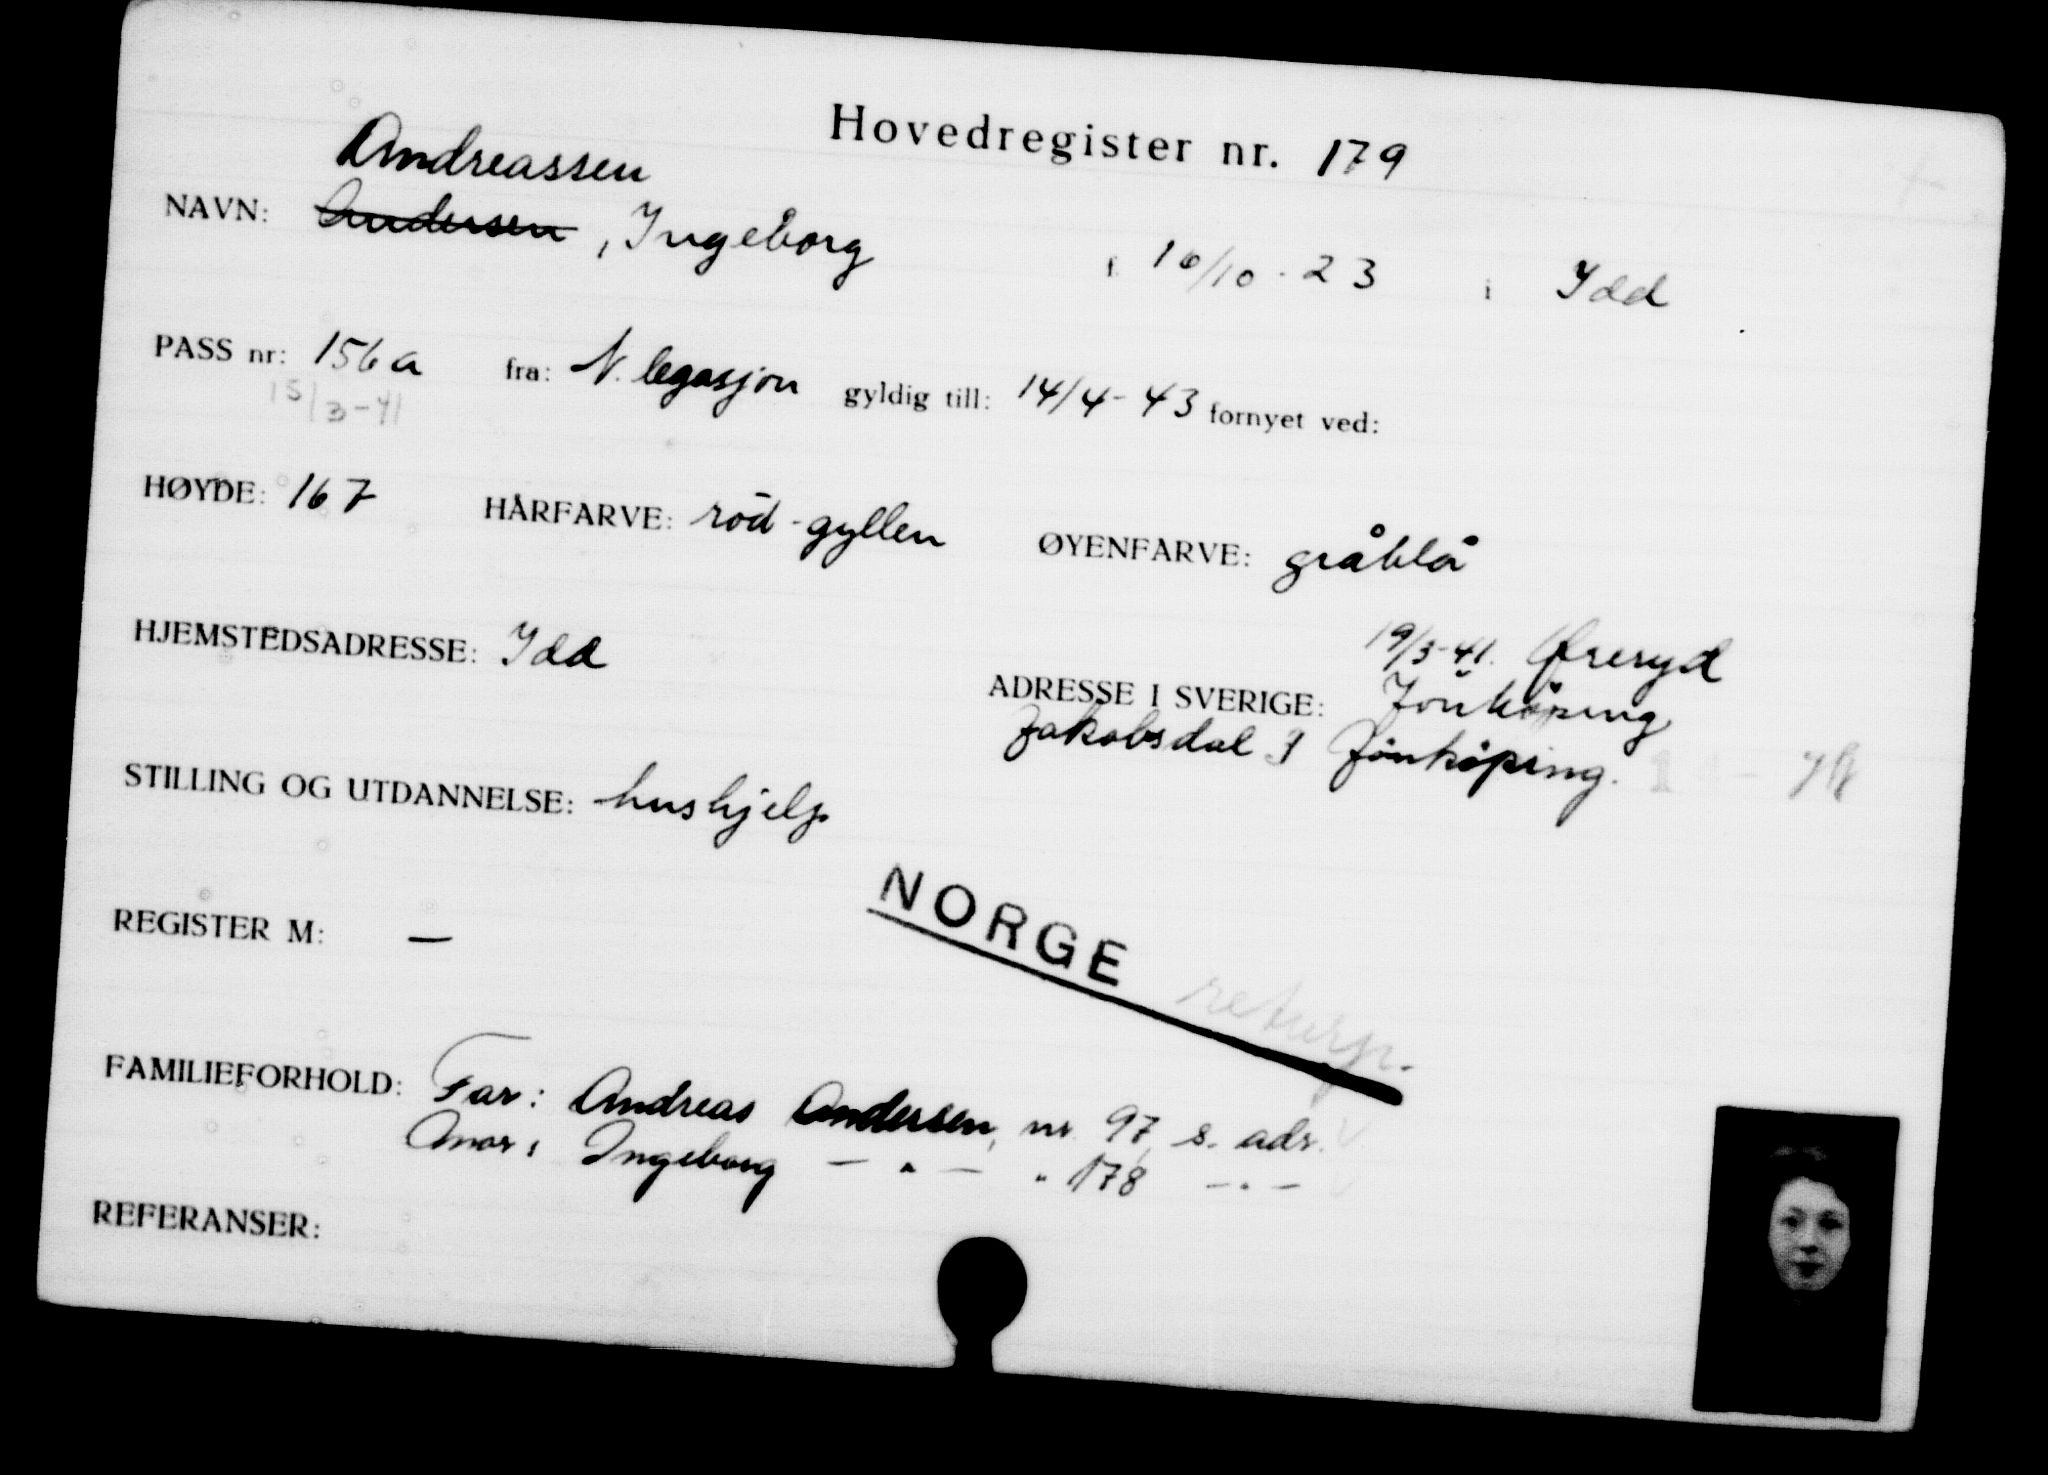 Hovedregister nr. 179
Andreassen
NAVN: Andersen, Ingeborg f. 16/10-23 i Idd
PASS nr: 156a fra: N. legasjon gyldig till: 14/4-43 fornyet ved:
15/3-41
HØYDE: 167 HÅRFARVE: rød-gyllen ØYENFARVE: gråblå
HJEMSTEDSADRESSE: Idd
19/3-41. Øreryd
ADRESSE I SVERIGE: Jönköping
Jakobsdal 9 Jönköping.
STILLING OG UTDANNELSE: hushjelp
REGISTER M: —
NORGE
FAMILIEFORHOLD: Far: Andreas Andersen, nr. 97, s. adr.
Mor: Ingeborg — " — " 178 — " —
REFERANSER: